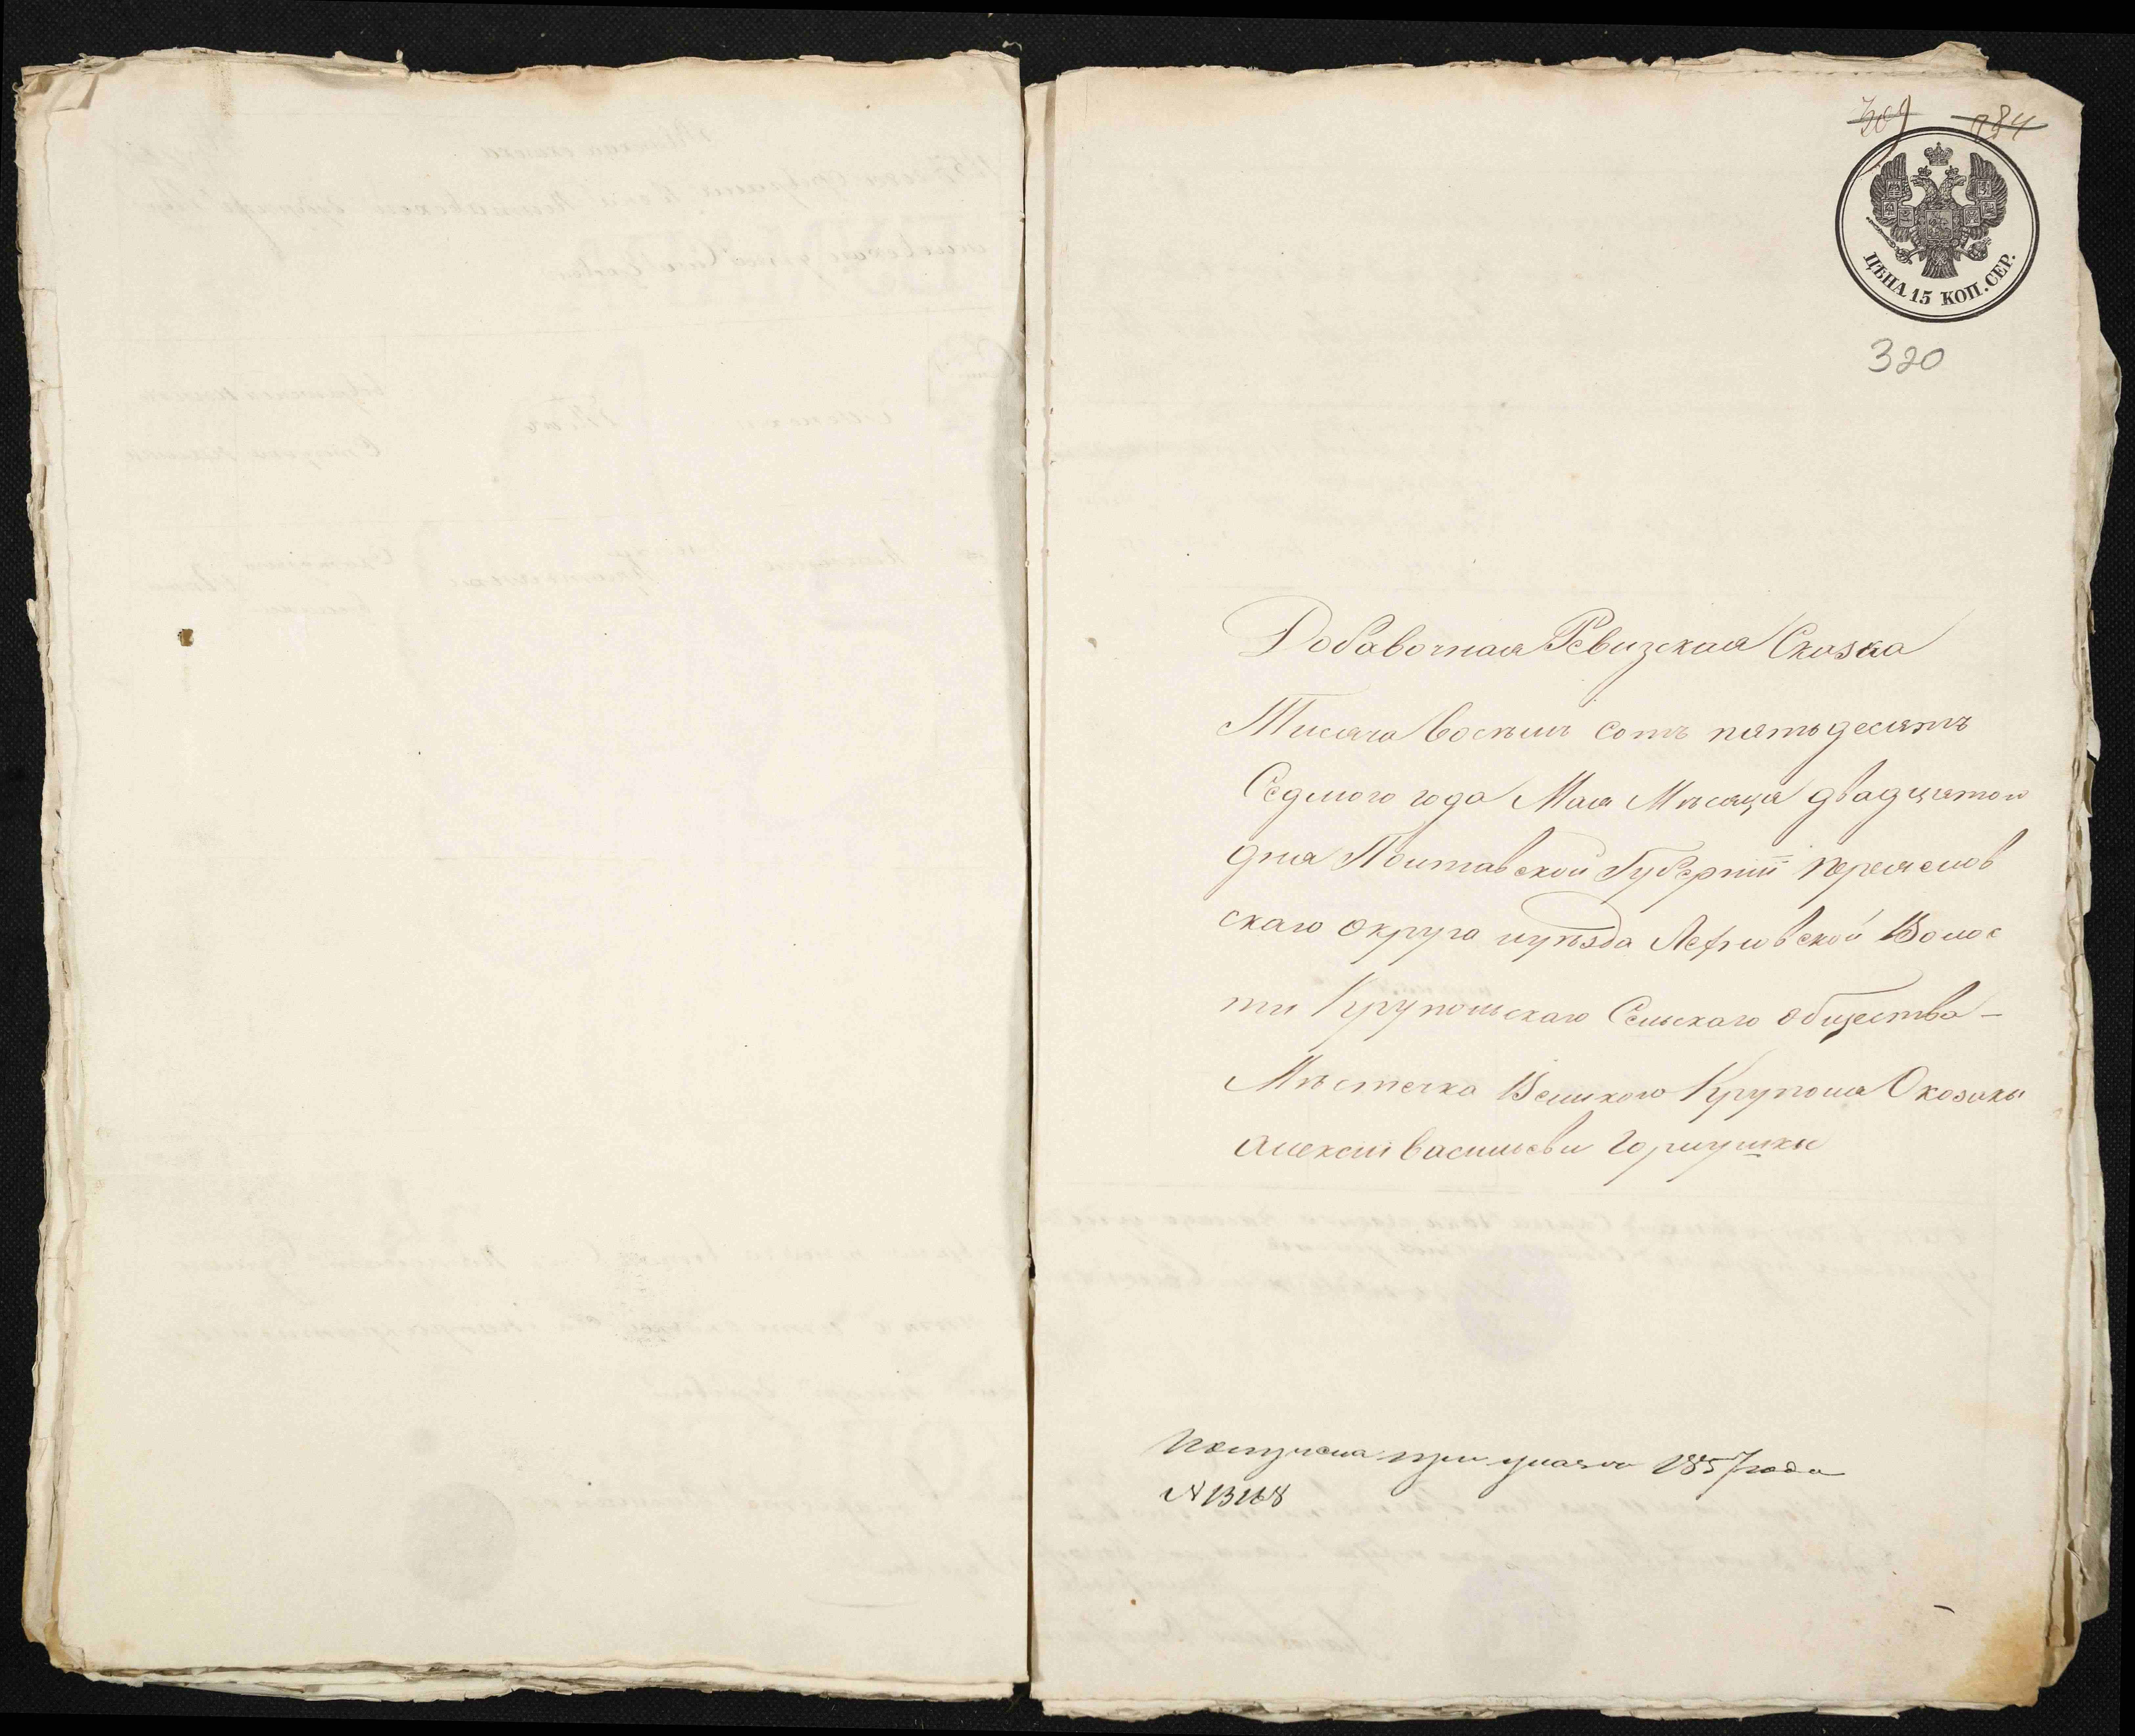 309 984
ЦѢНА 15 КОП. СЕР.
320
Добавочная Ревизская Сказка
Тисяча восѣмъ сотъ пятьдесятъ
Седмого года Мая Мѣсяца двадцятого
дня Полтавской Губернии переяслов
скаго округа иуѣзда Лефновской Волос
ти Круполскаго Селскаго общества -
Мѣстечка Великого Круполя Окозаки
Алексіи Василиеви Горлушки
Получена при указѣ 1857 года
№ 13168